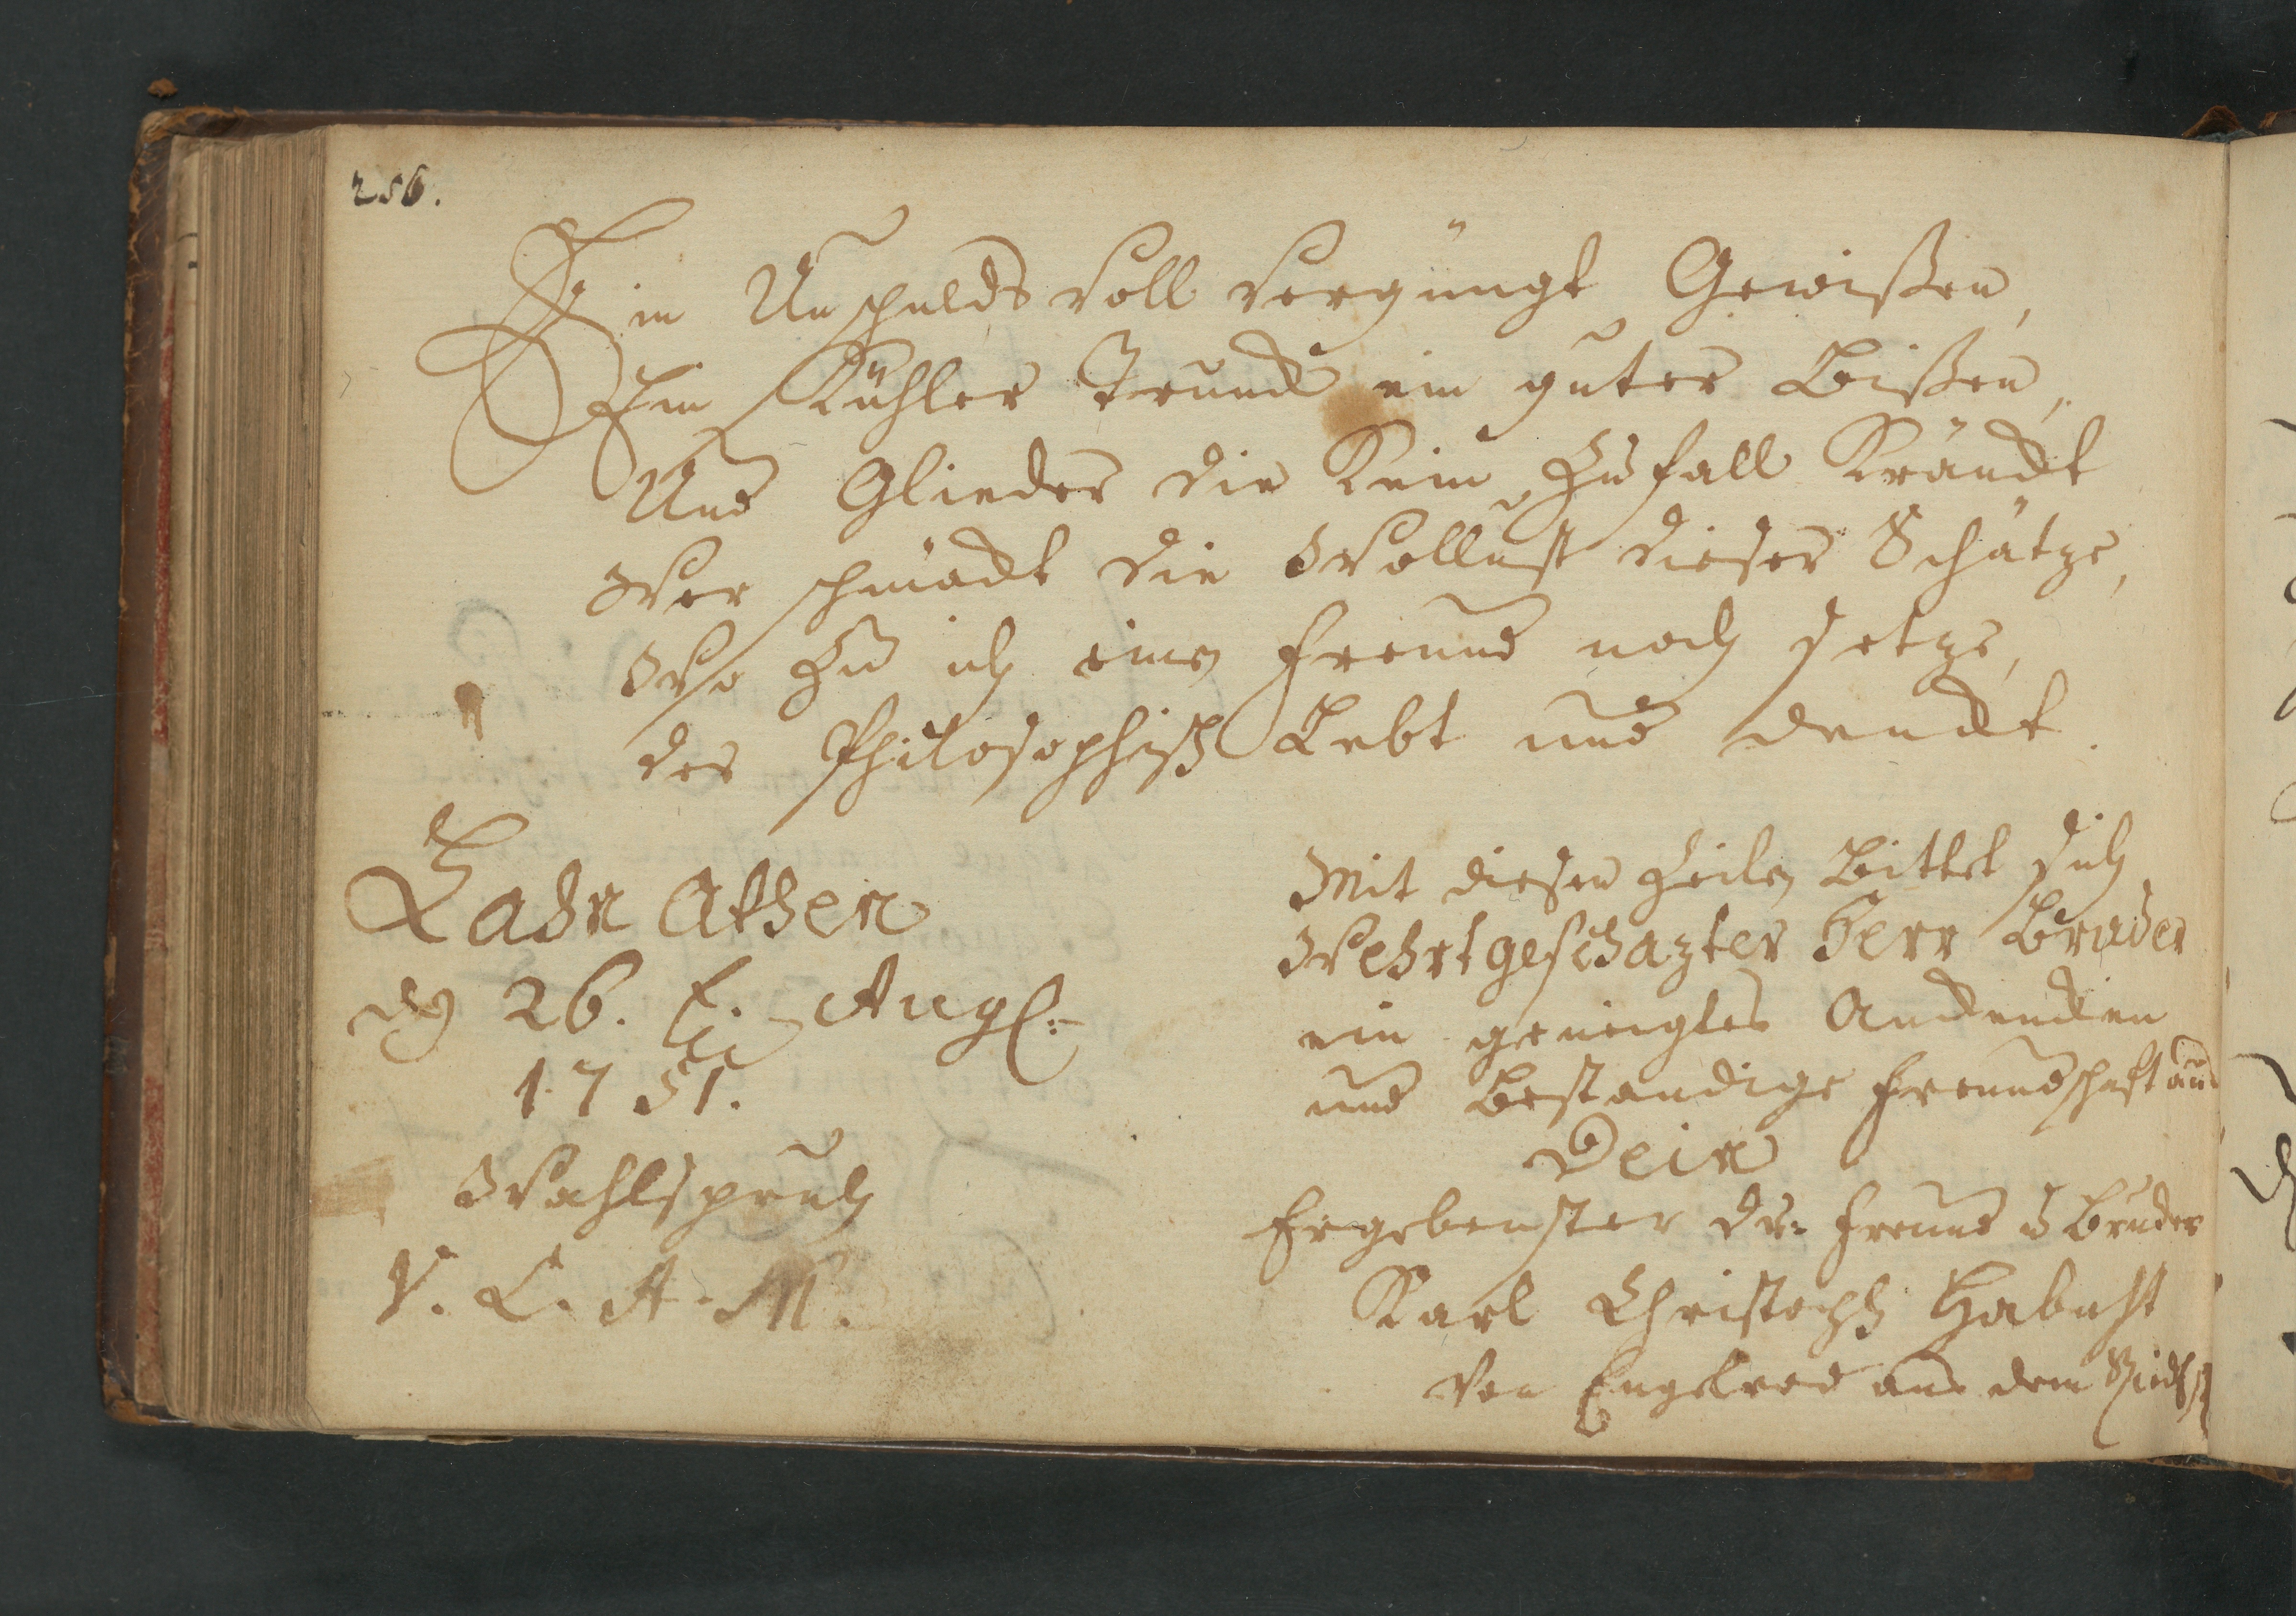 256.
Ein Unschulds voll vergüngt Gewißen,
Ein Kühler Trunck ein guter Bißen,
Und Glieder die Kein Zufall Kränckt
Wer schmäckt die Wollust dieser Schätze,
Wo Zu ich einen Freund noch setze,
der Philosophisch Lebt und denckt.
Lahn Athen
den 26. Augl:
1751.
Wahlspruch
V. L. A. M.
Mit diesen Zeilen Bittet sich
Wehrtgeschazter Herr Bruder
ein geneigtes Andencken
und Bestandige Freundschaft aus
Dein
Ergebenster Dr: Freund u Bruder
Karl Christoph Habicht
von Engelrod aus dem